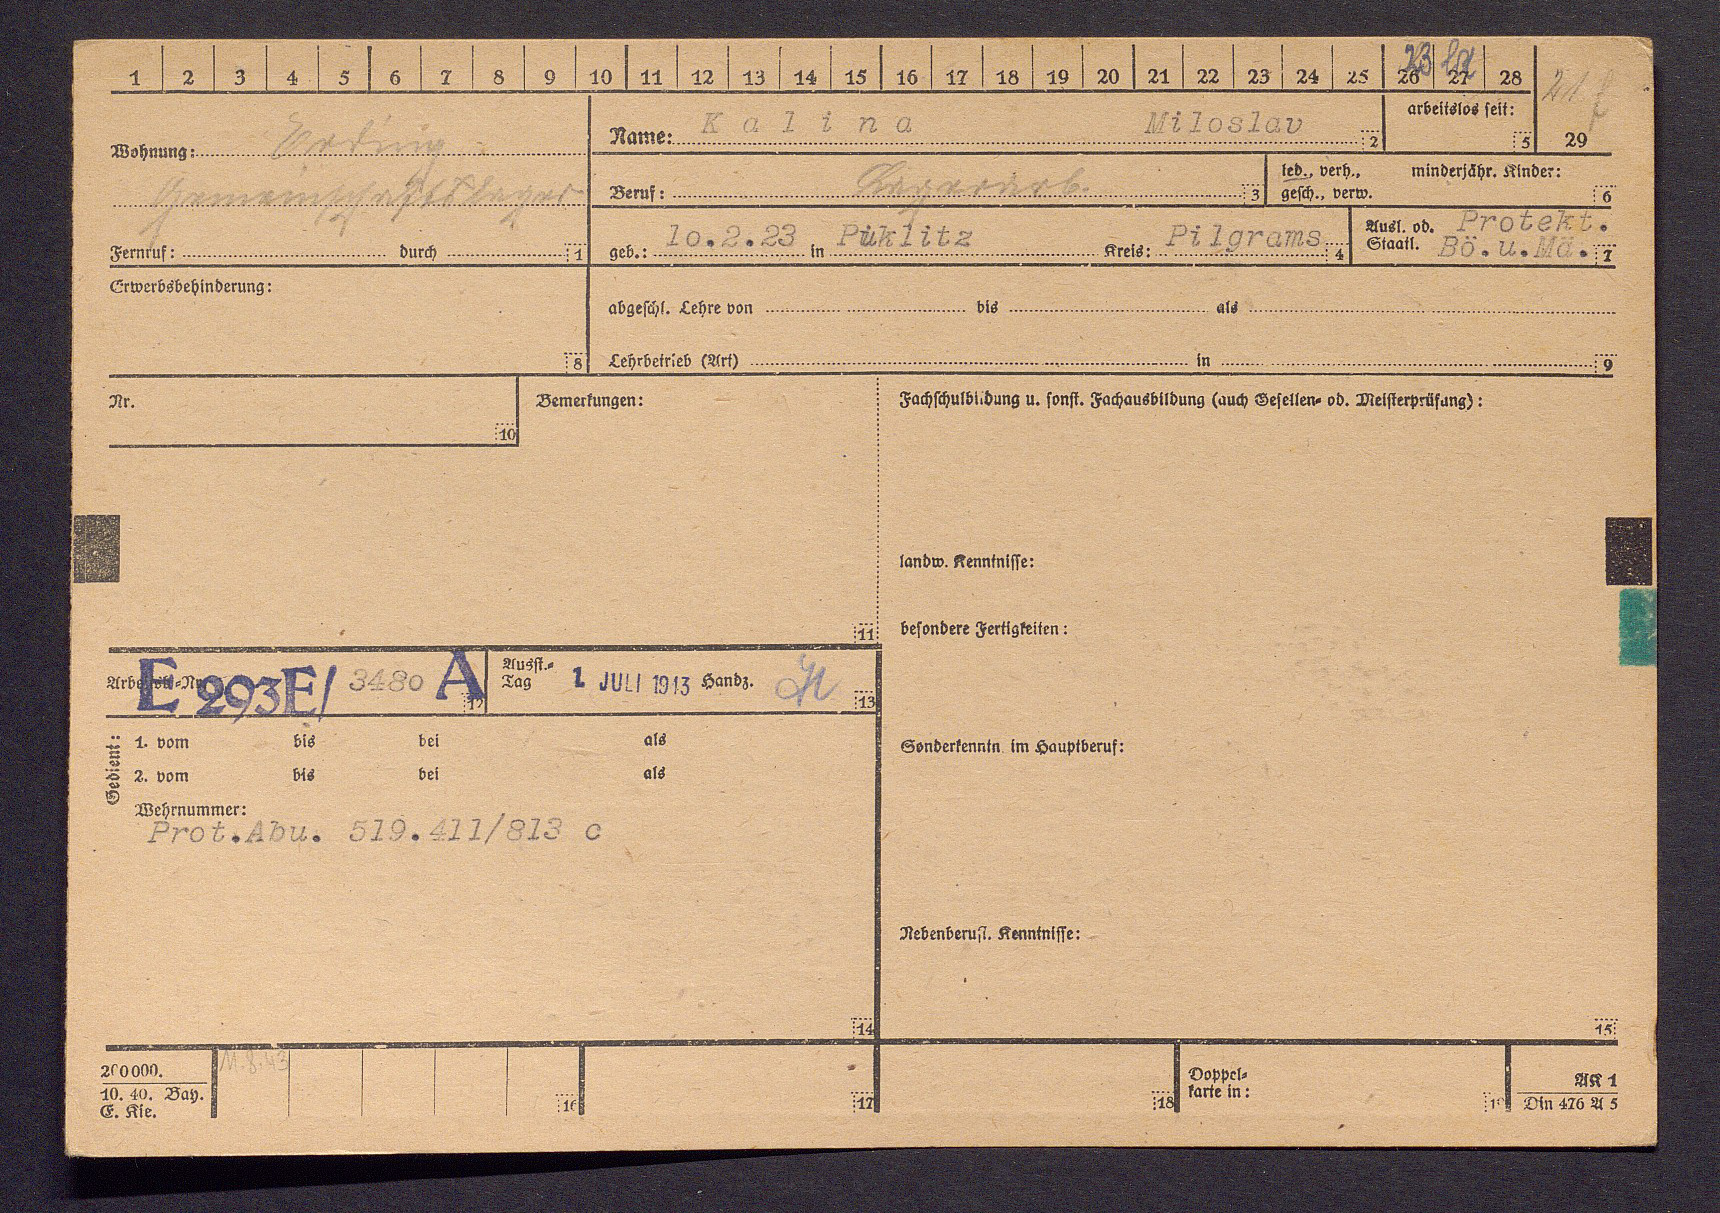 1 2 3 4 5 6 7 8 9 10 11 12 13 14 15 16 17 18 19 20 21 22 23 24 25 26 27 28 29
23
Wohnung: Erding
Gemeinschaftslager
Fernruf: durch 1
Name: Kalina Miloslav 2
arbeitslos seit: 5
Beruf: Lagerarb. 3
led., verh., minderjähr. Kinder:
gesch., verw. 6
geb.: 10.2.23 in Püklitz Kreis: Pilgrams 4
Ausl. od. Protekt.
Staatl. Bö.u.Mä. 7
Erwerbsbehinderung:
8
abgeschl. Lehre von bis als
Lehrbetrieb (Art) in 9
Nr.
10
Bemerkungen:
11
Fachschulbildung u. sonst. Fachausbildung (auch Gesellen- od. Meisterprüfung):
landw. Kenntnisse:
besondere Fertigkeiten:
Sonderkenntn. im Hauptberuf:
Nebenberufl. Kenntnisse:
15
E 293E/ 3480 A 12
Ausst.-
Tag 1 JULI 1943 Handz. 13
Gedient:
1. vom bis bei als
2. vom bis bei als
Wehrnummer:
Prot.Abu. 519.411/813 c
14
200000.
10. 40. Bay.
E. Kie.
11.8.43
16
17
18
Doppel-
karte in:
19
AK 1
Din 476 A 5